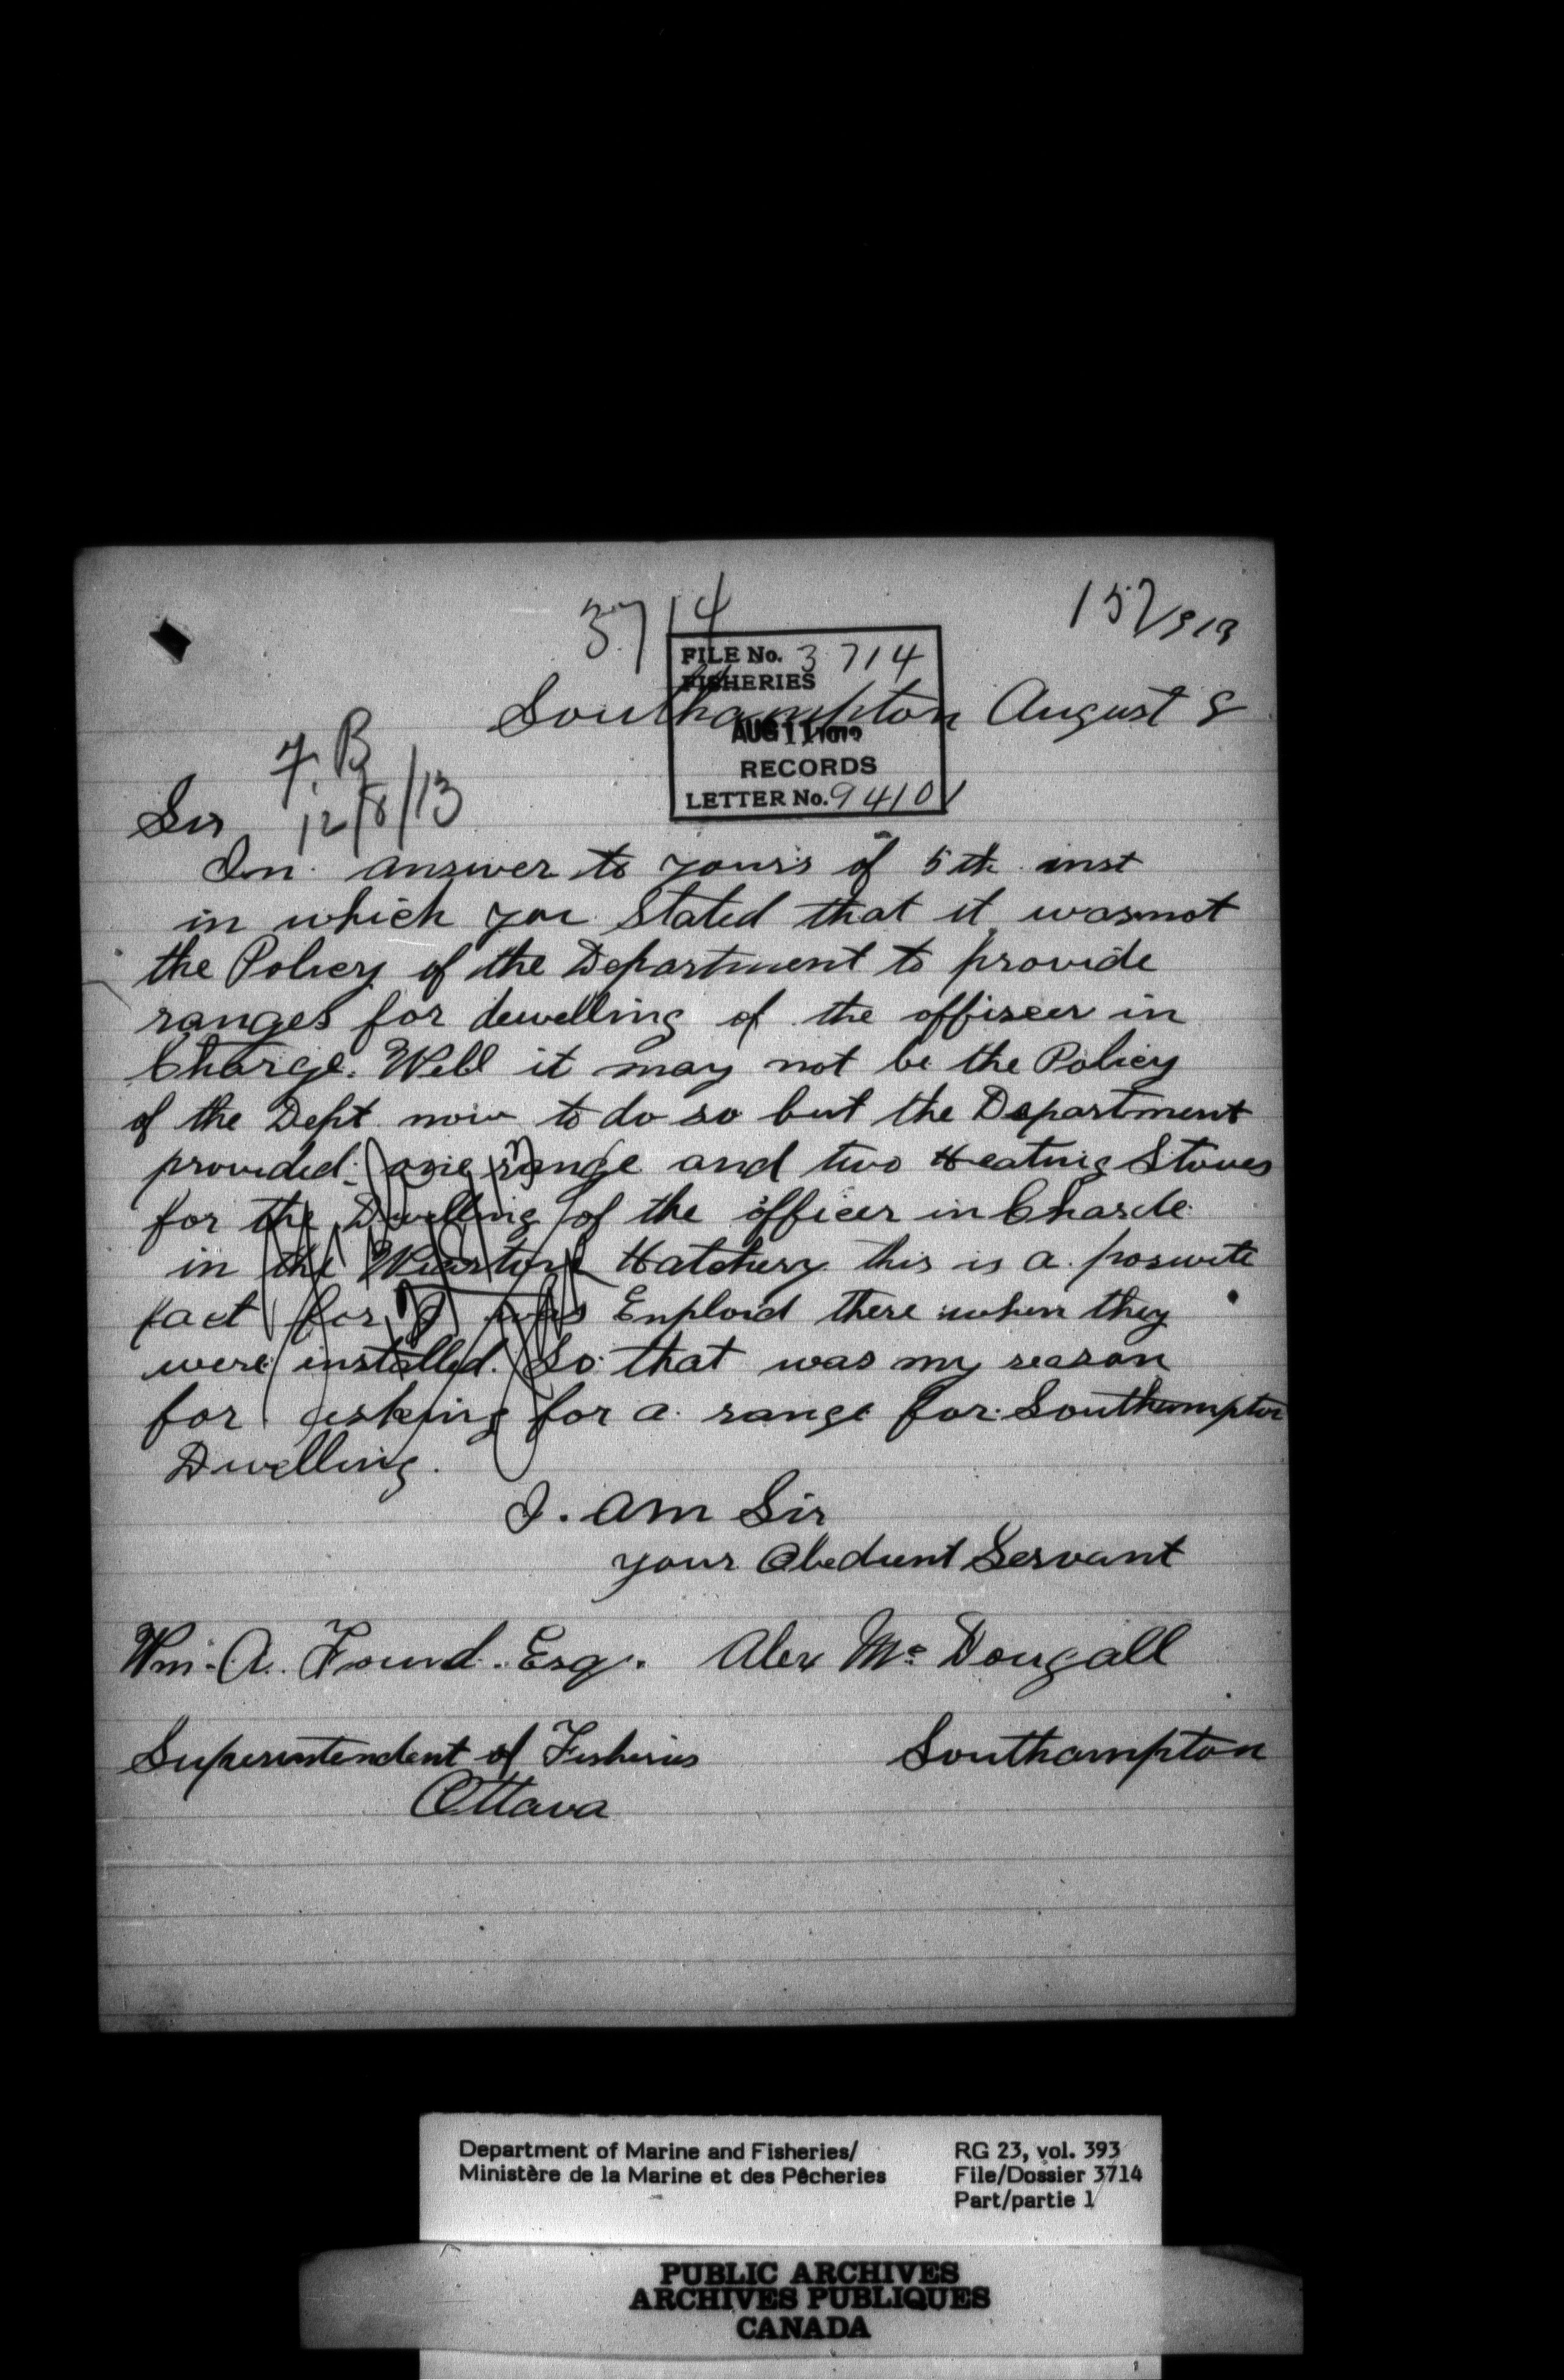 3714
157/913
FILE No. 3714
FISHERIES
AUG 11
RECORDS
LETTER No. 94101
Southampton August 8
F. B
12/8/13
Sir
In answer to yours of 5th inst
in which you Stated that it was not
the Policy of the Department to provide
ranges for dewelling of the offiseer in
Charge. Well it may not be the Policy
of the Dept now to do so but the Department
provided one range and two Heating Stoves
for the Dwelling of the officer in Charde
in the Wiarton Hatchery this is a poswite
fact for I was Enploid there when they
were installed. So that was my reason
for asking for a range for Southampton
Dwelling.
I. am Sir
your Obedient Servant
Wm. A. Found. Esq. Alex Mc Dougall
Superintendent of Fisheries Southampton
Ottava
Department of Marine and Fisheries/
Ministère de la Marine et des Pêcheries
RG 23, vol. 393
File/Dossier 3714
Part/partie 1
PUBLIC ARCHIVES
ARCHIVES PUBLIQUES
CANADA